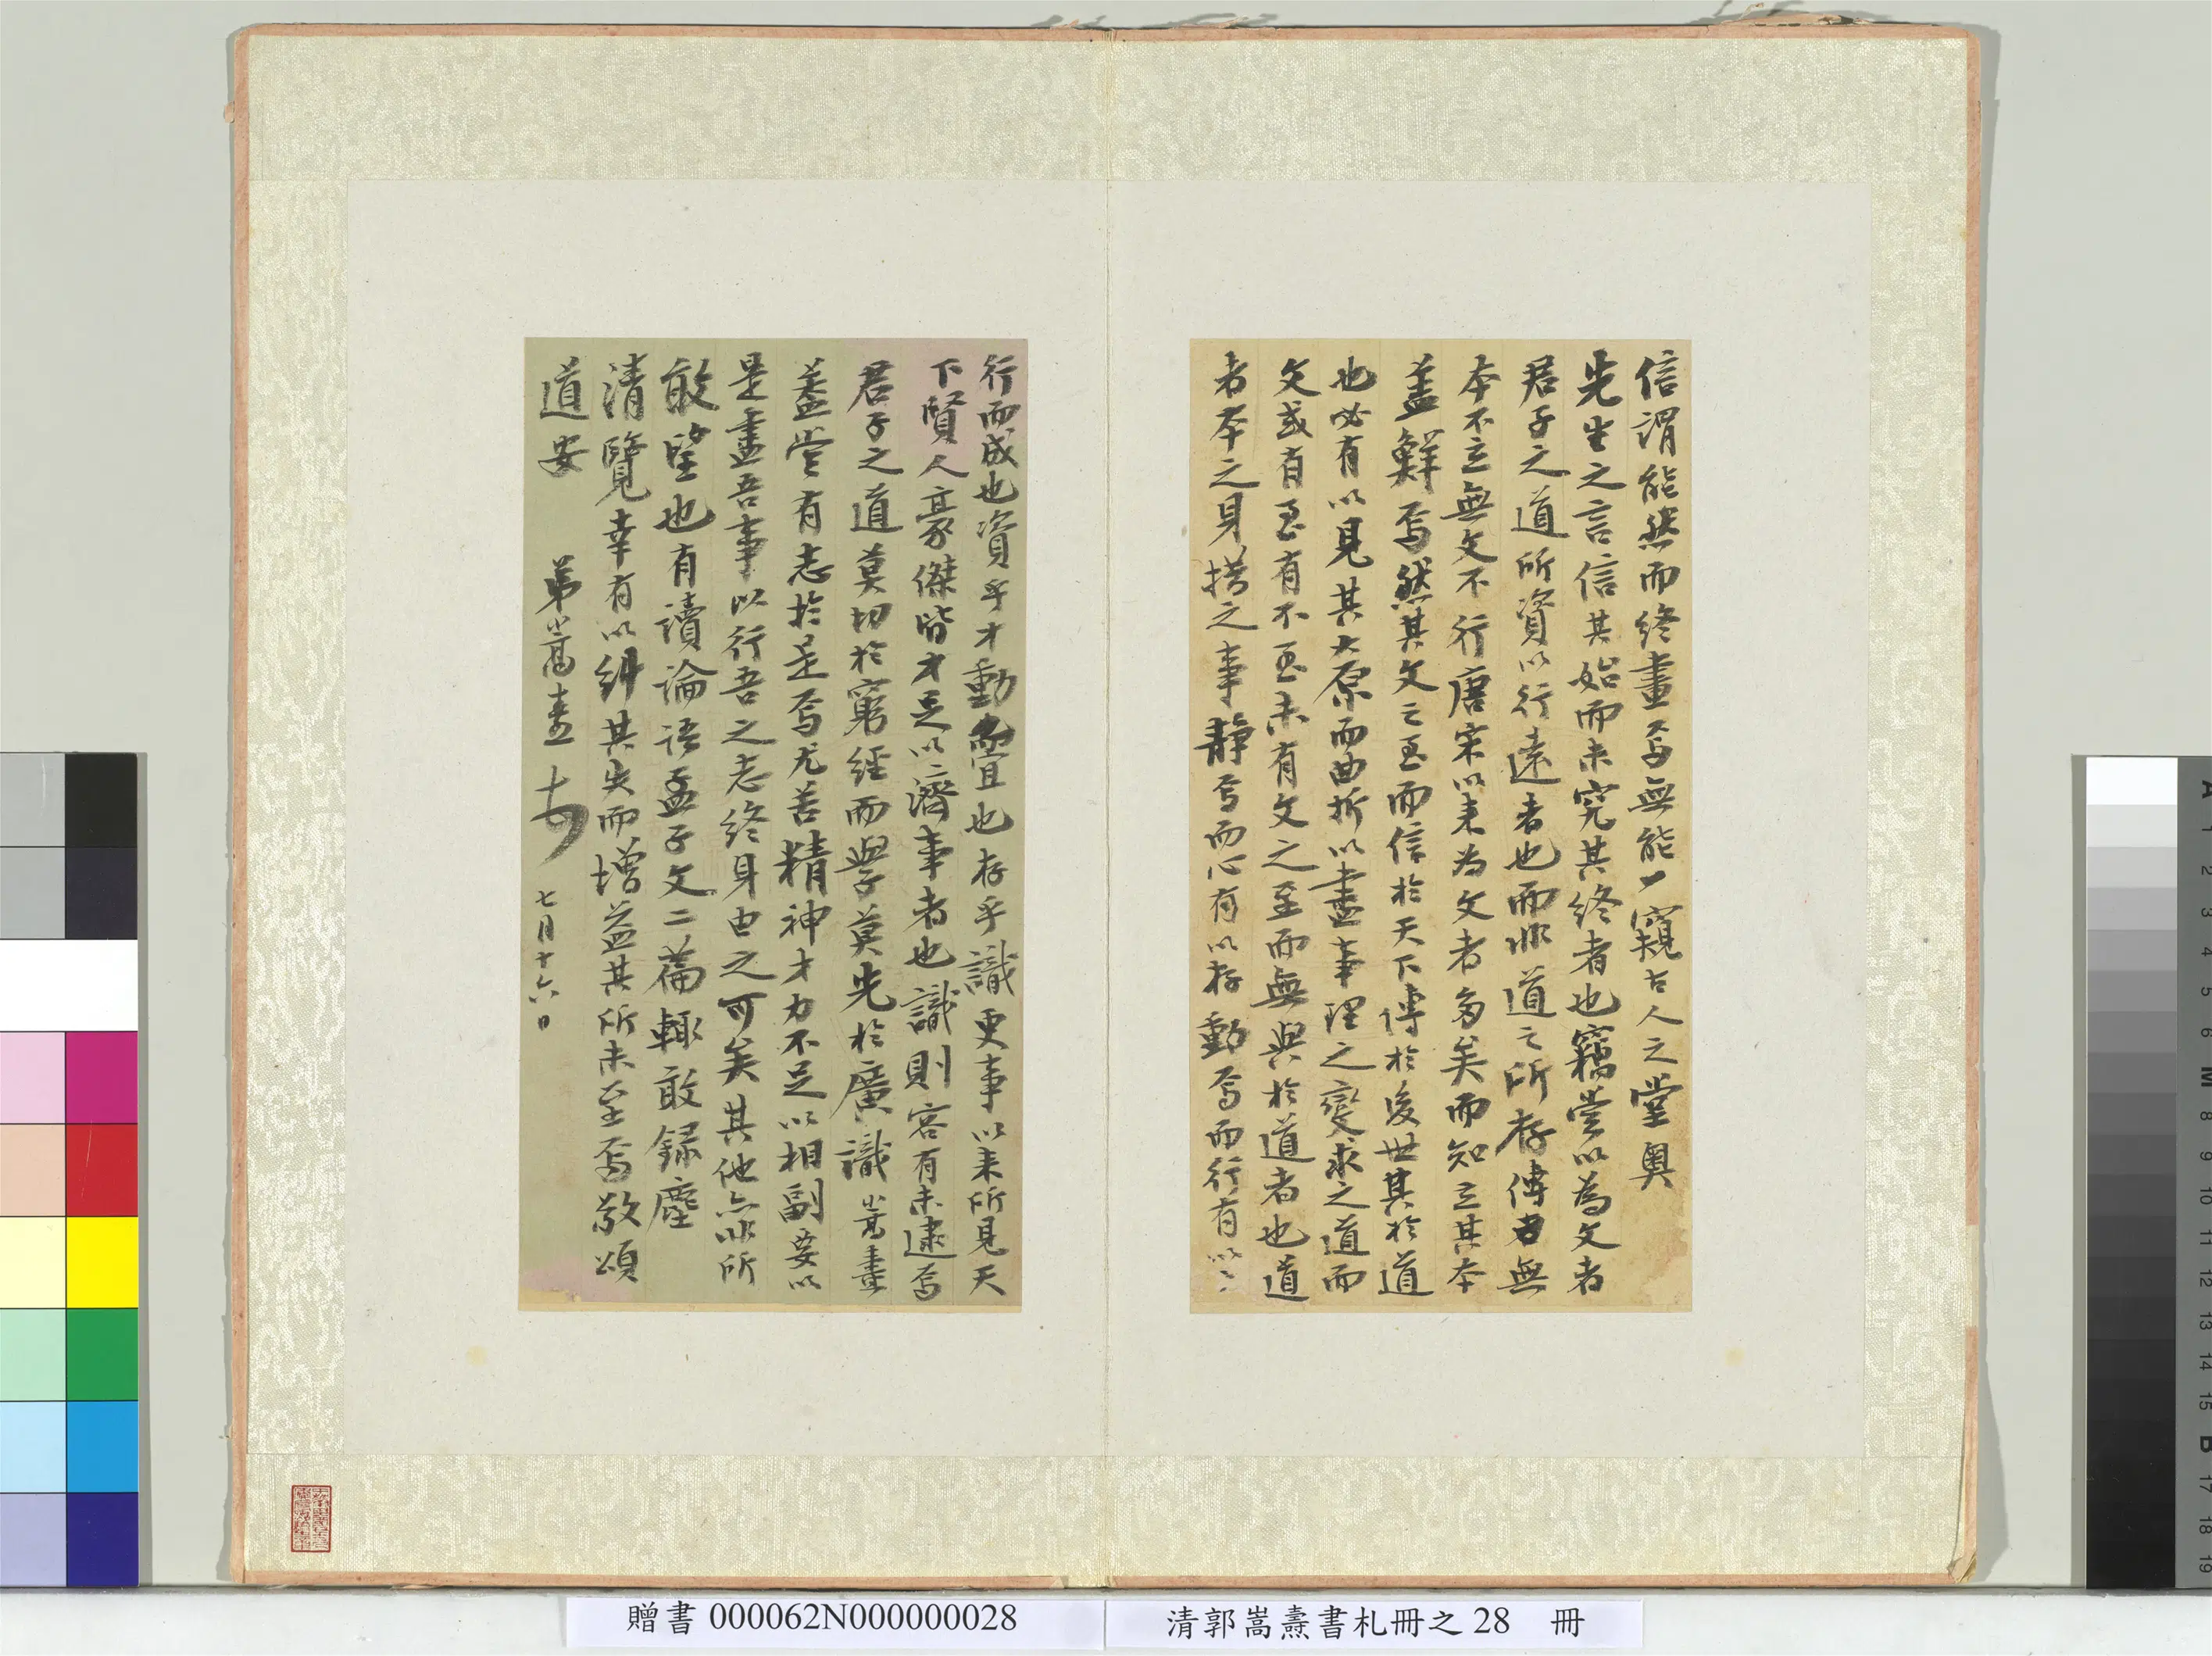 信謂能然而終畫焉無能少窺古人之堂奧
先生之言信其始而未究其終者也竊嘗以為文者
君子之道所資以行遠者也而非道之所存傳者無
本不立無文不行唐宋以來為文者多矣而知立其本
蓋鮮焉然其文之至而信於天下傳於後世其於道
也必有以見其大原而曲折以盡事理之變求之道而
文或有至有不至未有文之至而無與於道者也道
者本之身措之事靜焉而心有以存動焉而行有以
行而成也資乎才動而宜也存乎識更事以來所見天
下賢人豪傑皆才足以濟事者也識則容有未逮焉
君子之道莫切於窮經而學莫先於廣識嵩燾
蓋嘗有志於是焉尤苦精神才力不足以相副要以
是盡吾事以行吾之志終身由之可矣其他亦非所
敢望也有讀論語孟子文二篇輒敢錄塵
清覽幸有以糾其失而增益其所未至焉敬頌
道安 弟嵩燾 七月十六日
贈書 000062N000000028
清郭嵩燾書札冊之 28 冊